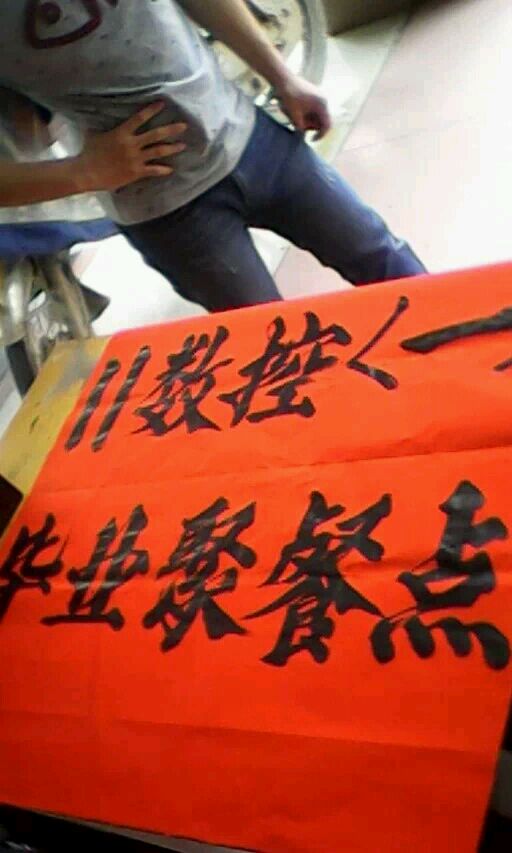 11数控く一
毕业聚餐点